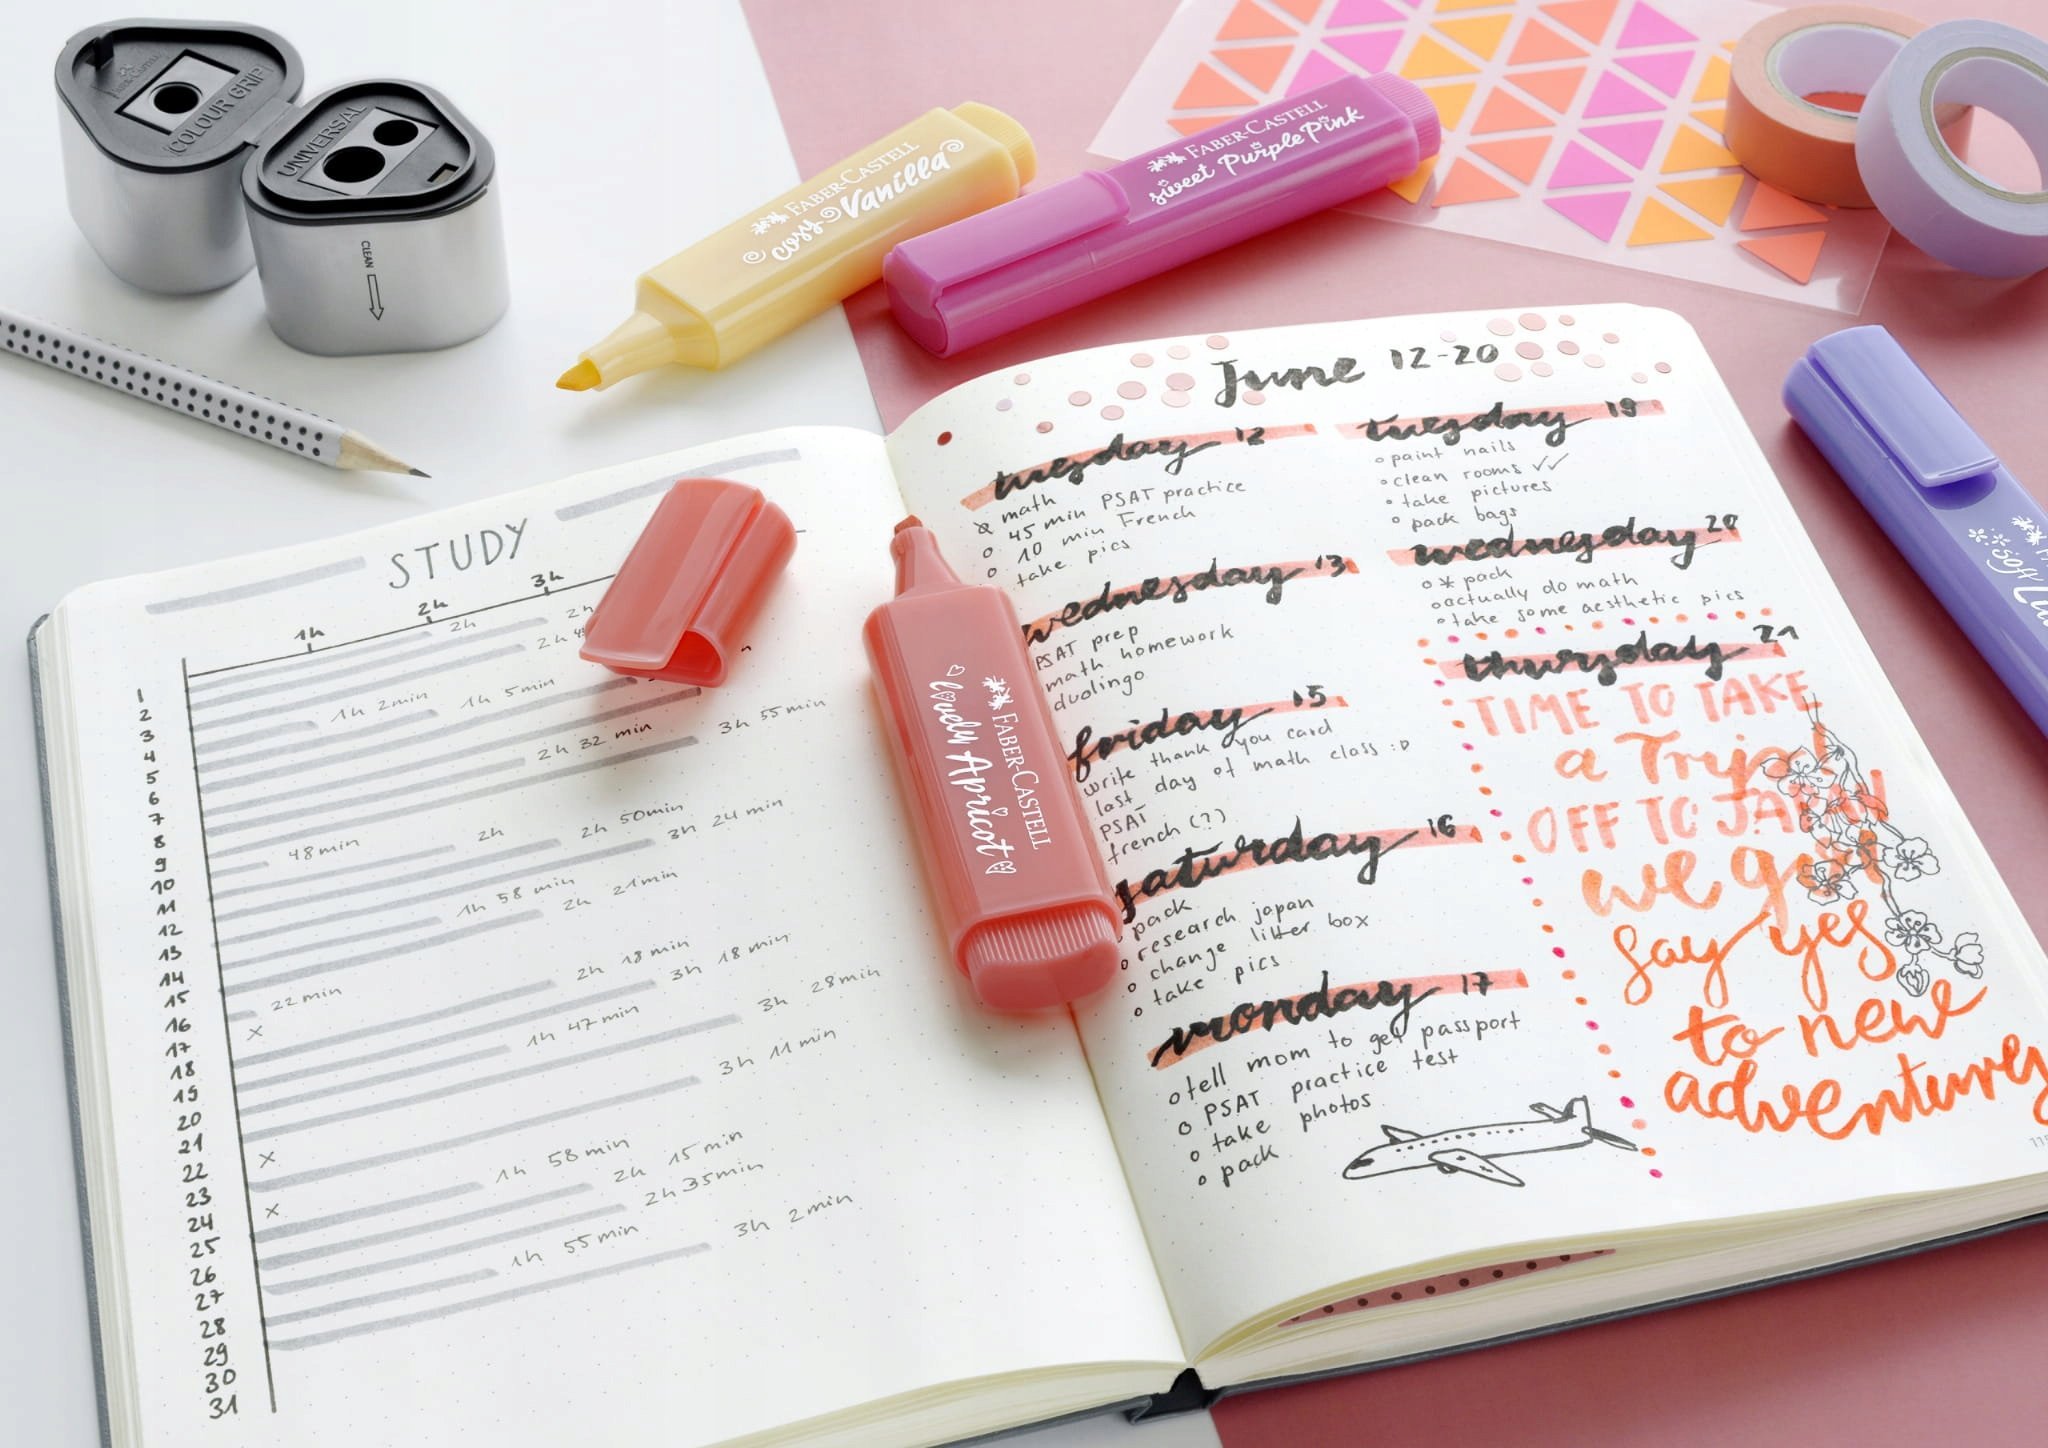 COLOUR GRIP
UNIVERSAL
CLEAN
FABER-CASTELL
cosy Vanilla
FABER-CASTELL
sweet Purple Pink
FABER-CASTELL
lovely Apricot
soft
STUDY
1h 2h 3h
2h
2h
1h 2min
1h 5min
2h 32 min
3h 55 min
48min
2h
2h 50min
3h 24 min
1h 58 min
2h 21min
22min
2h 18min
3h 18 min
x
1h 47min
3h 28min
3h 11 min
x
1h 58min
x
2h 15 min
2h 35min
1h 55min
3h 2min
1
2
3
4
5
6
7
8
9
10
11
12
13
14
15
16
17
18
19
20
21
22
23
24
25
26
27
28
29
30
31
June 12-20
tuesday 12
math
45 min PSAT practice
10 min French
take pics
wednesday 13
PSAT prep
math homework
duolingo
friday 15
write thank you card
last day of math class :D
PSAT
french (?)
saturday 16
pack
research japan
change litter box
take pics
monday 17
tell mom to get passport
PSAT practice test
take photos
pack
tuesday 19
paint nails
clean rooms ✓✓
take pictures
pack bags
wednesday 20
* pack
actually do math
take some aesthetic pics
thursday 21
TIME TO TAKE
a Trip!
OFF TO
we
say yes
to new
adventures